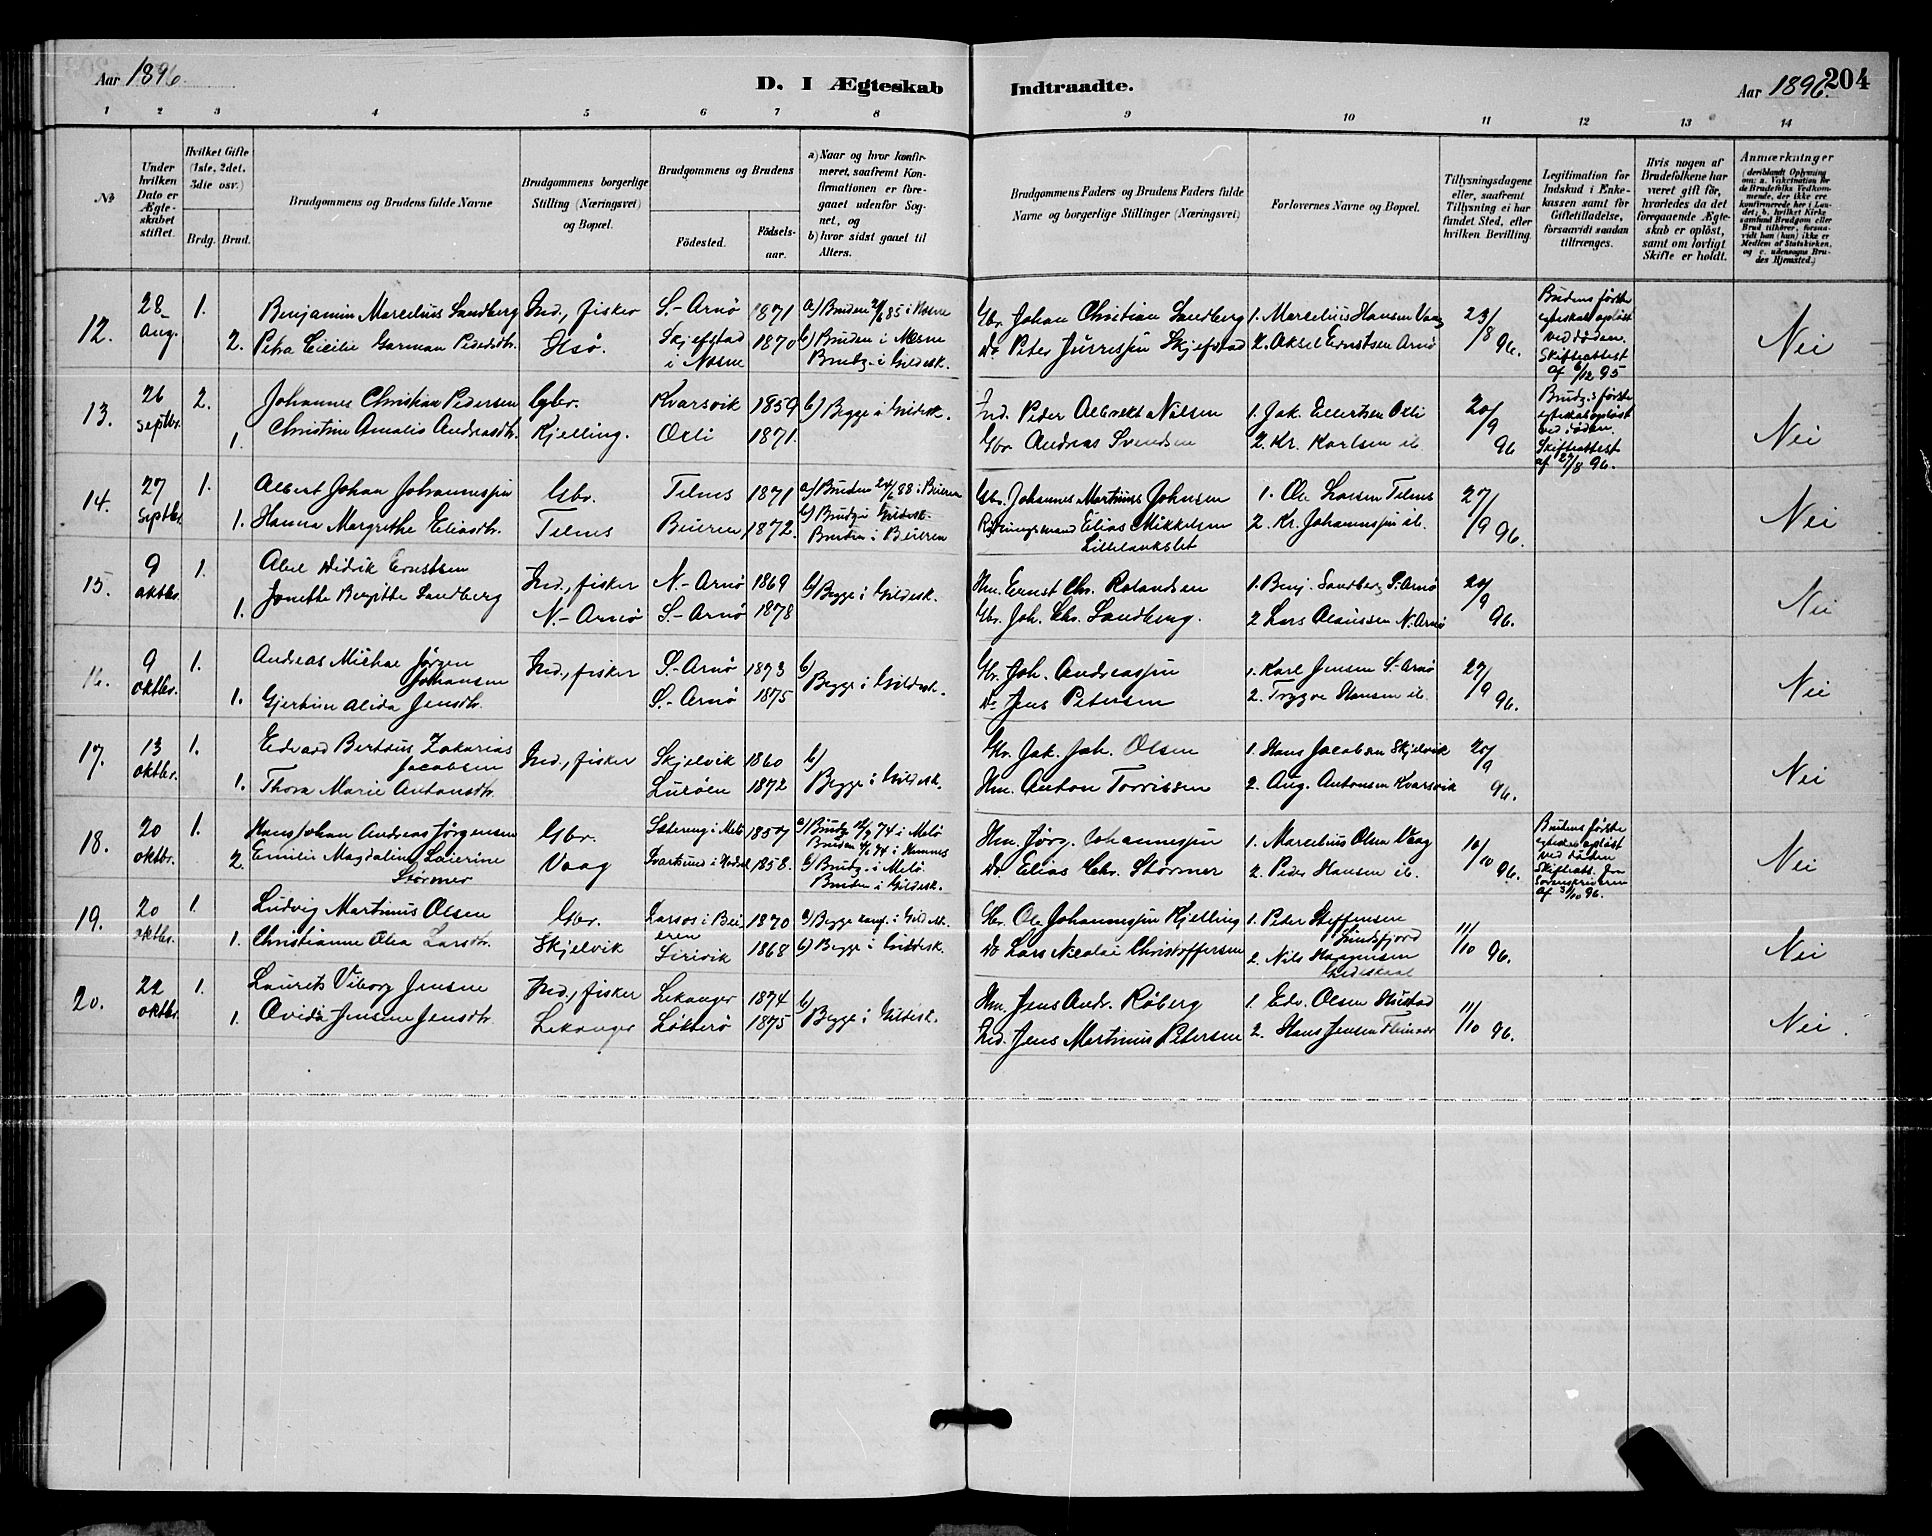 Aar 1896.
D. I Ægteskab Indtraadte.
Aar 1896. 204
1 2 3 4 5 6 7 8 9 10 11 12 13 14
No
Under hvilken Dato er Ægteskabet stiftet.
Hvilket Gifte (1ste, 2det, 3die osv.)
Brdg. Brud.
Brudgommens og Brudens fulde Navne
Brudgommens borgerlige Stilling (Næringsvei) og Bopæl.
Brudgommens og Brudens
Födested.
Födselsaar.
a) Naar og hvor konfirmeret, saafremt Konfirmationen er foregaaet udenfor Sognet, og
b) hvor sidst gaaet til Alters.
Brudgommens Faders og Brudens Faders fulde Navne og borgerlige Stillinger (Næringsvei)
Forlovernes Navne og Bopæl.
Tillysningsdagene eller, saafremt Tillysning ei har fundet Sted, efter hvilken Bevilling.
Legitimation for Indskud i Enkekassen samt for Giftetilladelse, forsaavidt saadan tiltrænges.
Hvis nogen af Brudefolkene har været gift för, hvorledes da det foregaaende Ægteskab er oplöst, samt om lovligt Skifte er holdt.
Anmærkninger (deriblandt Oplysning om: a. Vakcination for de Brudefolks Vedkommende, der ikke ere konfirmerede her i Landet; b. hvilket Kirkesamfund Brudgom eller Brud tilhörer, forsaavidt han (hun) ikke er Medlem af Statskirken, og c. udensogns Brudes Hjemsted.)
12. 28 aug. 1. Benjamin Marcelius Sandberg Ind., fisker S.-Arnö 1871 a) Bruden 21/6 85 i Nesne Gbr. Johan Christian Sandberg 1. Marcelius Hansen Vaag 23/8 96. Brudens første egteskab opløst ved døden. Skifteattest af 6/12 95 Nei
2. Petra Cicilie Garman Pedersdtr. Skjefstad i Nesne 1870 b) Bruden i Nesne Brudg. i Gildesk. Do Peter Jurresen Skjefstad 2. Aksel Ernstsen Arnö
13. 26 septbr. 2. Johannes Christian Pedersen Gbr. Kvarsvik 1859 b) Begge i Gildesk. Ind. Peder Albrekt Nilsen 1. Jak. Eilertsen Oxli 20/9 96 Brudg.s første egteskab opløst ved døden. Skifteattest af 27/8 96. Nei
1. Christine Amalie Andreasdtr. Kjelling. Oxli 1871. Gbr. Andreas Svendsen 2. Kr. Karlsen ib.
14. 27 septbr. 1. Albert Johan Johannesen Gbr. Telnes 1871 a) Bruden 24/6 88 i Beieren Gbr. Johannes Martinus Johnsen 1. Ole Larsen Telnes 27/9 96. Nei
1. Hanna Margrethe Eliasdtr. Telnes Beieren 1872. b) Brudg. i Gildesk. Bruden i Beieren Elias Mikkelsen 2. Kr. Johannesen ib.
15. 9 oktbr. 1. Abel Didrik Ernstsen Ind., fisker N.-Arnö 1869 b) Begge i Gildesk. Hm. Ernst Chr. Rolandsen 1. Benj. Sandberg S.-Arnö 20/9 96. Nei
1. Jonette Bergitte Sandberg N.-Arnö S.-Arnö 1878 Gbr. Joh. Chr. Sandberg. 2 Lars Olaussen N. Arnö
16. 9 oktbr. 1. Andreas Michae Jørgen Johansen Ind., fisker S.-Arnö 1873 b) Begge i Gildesk. Gbr. Joh. Andreassen 1. Karl Jensen S.-Arnö 27/9 96. Nei
1. Gjertine Alida Jensdtr. S.-Arnö 1875 Do Jens Petersen 2. Trygve Hansen ib.
17. 13 oktbr. 1. Edvard Bertous Zakarias Jacobsen Ind., fisker Skjelvik 1860 b) Begge i Gildesk. Gbr. Jak. Joh. Olsen 1. Hans Jacobsen Skjelvik 20/9 96. Nei
1. Thora Marie Antonsdtr. Luröen 1872 Hm. Anton Torrissen 2. Aug. Antonsen Kvarsvik
18. 20 oktbr. 1. Hans Johan Andreas Jørgensen Gbr. i Melö 1857 74 i Melö 74 i Hemnes Hm. Jörg. Johannesen 1. Marcelius Olsen Vaag 10/10 96. Brudens første egteskab opløst ved døden Skifteatt. fra Sorenskriveren af 3/10 96. Nei
2. Emilie Magdalina Laierine Størmer Vaag 1858. b) Brudg. i Melö. Bruden i Gildesk. Do Elias Chr. Stormer 2. Peder Hansen ib.
19. 20 oktbr. 1. Ludvig Martinus Olsen Gbr. Larsos i Beieren 1870 a) Begge konf. i Gildesk. Gbr. Ole Johannesen Kjelling 1. Peter Steffensen Sundsfjord 11/10 96. Nei
1. Christianne Olea Larsdtr. Skjelvik 1868 b) Begge i Gildesk. Do Lars Nicolai Christoffersen 2. Nils Gildeskaal
20. 22 oktbr. 1. Laurits Viborg Jensen Ind., fisker Lekanger 1874 b) Begge i Gildesk. Hm. Jens Andr. Röberg 1. Edv. Olsen Hustad 11/10 96. Nei.
1. Ovida Jensine Jensdtr. Lekanger 1875 Ind. Jens Martinus Petersen 2. Hans Jensen